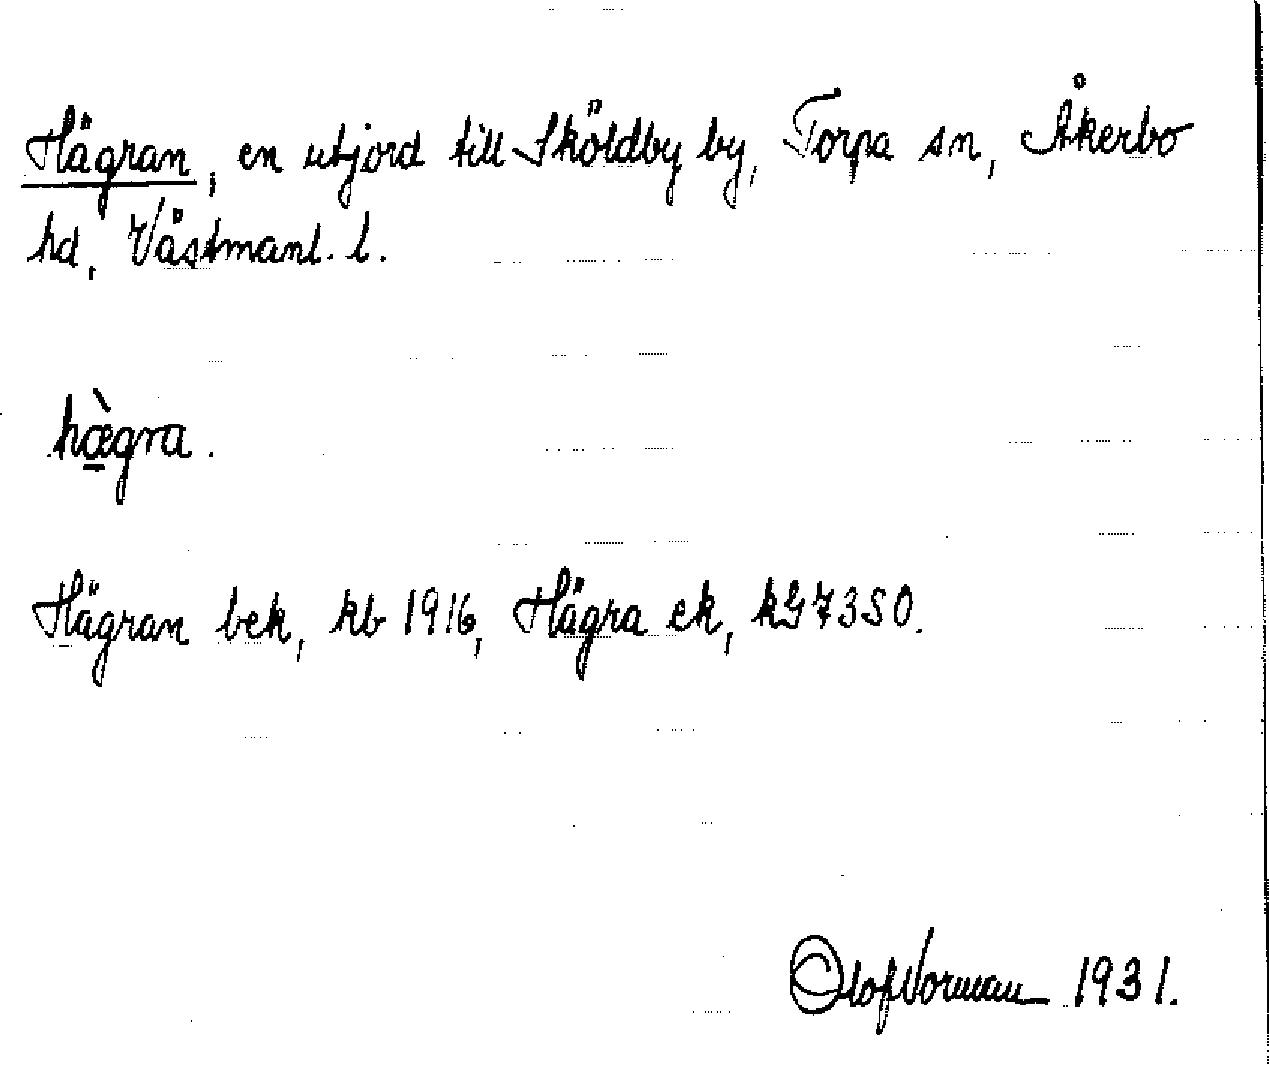 Hägran, en utjord till Sköldby by, Torpa sn, Åkerbo
hd, Västmanl. l.
hæ̠̀gra.
Hägran bek, kb 1916, Hägra ek, kG 7350.
Olof Norman 1931.